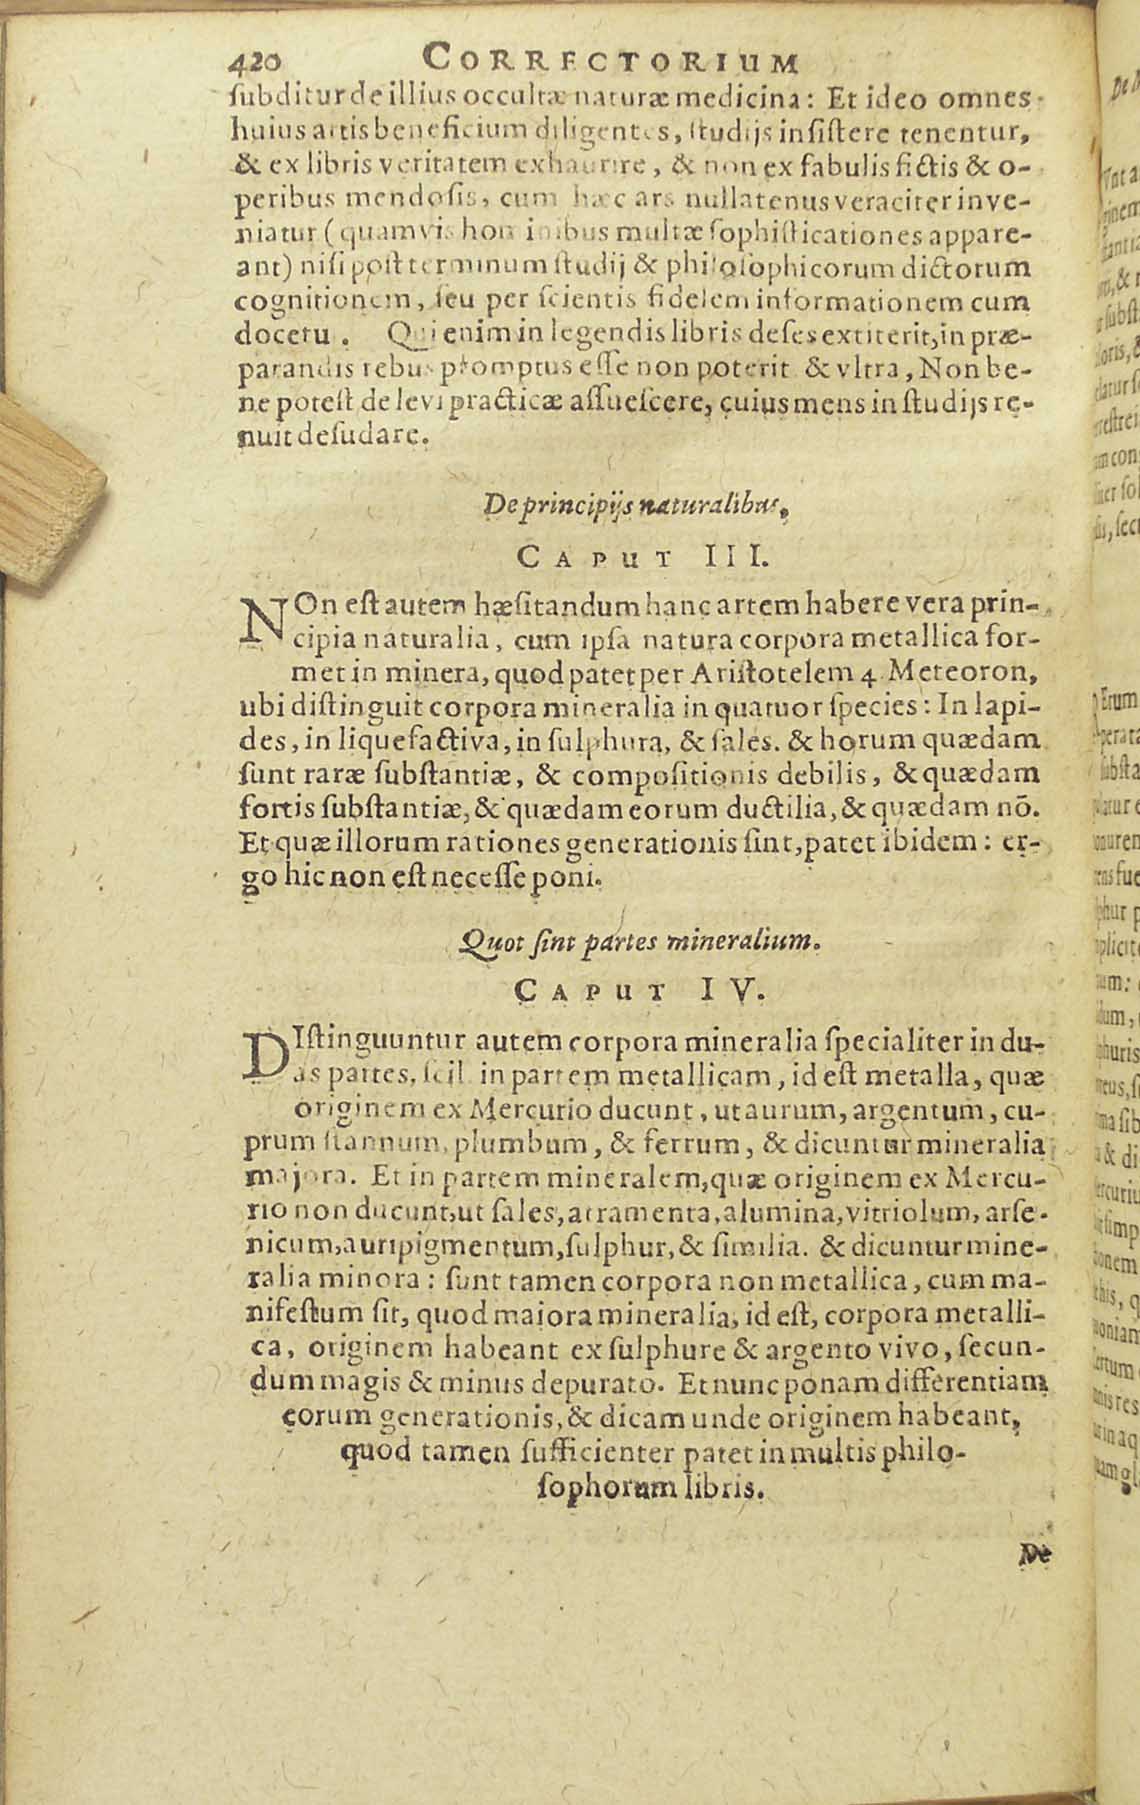 420 CORRECTORIUM
ſubditur de illius occultæ naturæ medicina: Et ideo omnes
huius artis beneficium diligentes, ſtudijs inſiſtere tenentur,
& ex libris veritatem exhaurire, & non ex fabulis fictis & o-
peribus mendoſis, cum hæc ars nullatenus veraciter inve-
niatur (quamvis hominibus multæ ſophiſticationes appare-
ant) niſi poſt terminum ſtudij & philoſophicorum dictorum
cognitionem, ſeu per ſcientis fidelem informationem cum
docetu. Qui enim in legendis libris deſes extiterit, in præ-
parandis rebus promptus eſſe non poterit & vltra, Non be-
ne poteſt de levi practicæ aſſueſcere, cuius mens in ſtudijs re-
nuit deſudare.
De principijs naturalibus,
CAPUT III.
NOn eſt autem hæſitandum hanc artem habere vera prin-
cipia naturalia, cum ipſa natura corpora metallica for-
met in minera, quod patet per Ariſtotelem 4 Meteoron,
ubi diſtinguit corpora mineralia in quatuor ſpecies: In lapi-
des, in liquefactiva, in ſulphura, & ſales. & horum quædam
ſunt raræ ſubſtantiæ, & compoſitionis debilis, & quædam
fortis ſubſtantiæ, & quædam eorum ductilia, & quædam nō.
Et quæ illorum rationes generationis ſint, patet ibidem: er-
go hic non eſt neceſſe poni.
Quot ſint partes mineralium.
CAPUT IV.
DIſtinguuntur autem corpora mineralia ſpecialiter in du-
as partes, ſcil. in partem metallicam, id eſt metalla, quæ
originem ex Mercurio ducunt, ut aurum, argentum, cu-
prum ſtannum, plumbum, & ferrum, & dicuntur mineralia
majora. Et in partem mineralem, quæ originem ex Mercu-
rio non ducunt, ut ſales, atramenta, alumina, vitriolum, arſe-
nicum, auripigmentum, ſulphur, & ſimilia. & dicuntur mine-
ralia minora: ſunt tamen corpora non metallica, cum ma-
nifeſtum ſit, quod maiora mineralia, id eſt, corpora metalli-
ca, originem habeant ex ſulphure & argento vivo, ſecun-
dum magis & minus depurato. Et nunc ponam differentiam
eorum generationis, & dicam unde originem habeant,
quod tamen ſufficienter patet in multis philo-
ſophorum libris.
De